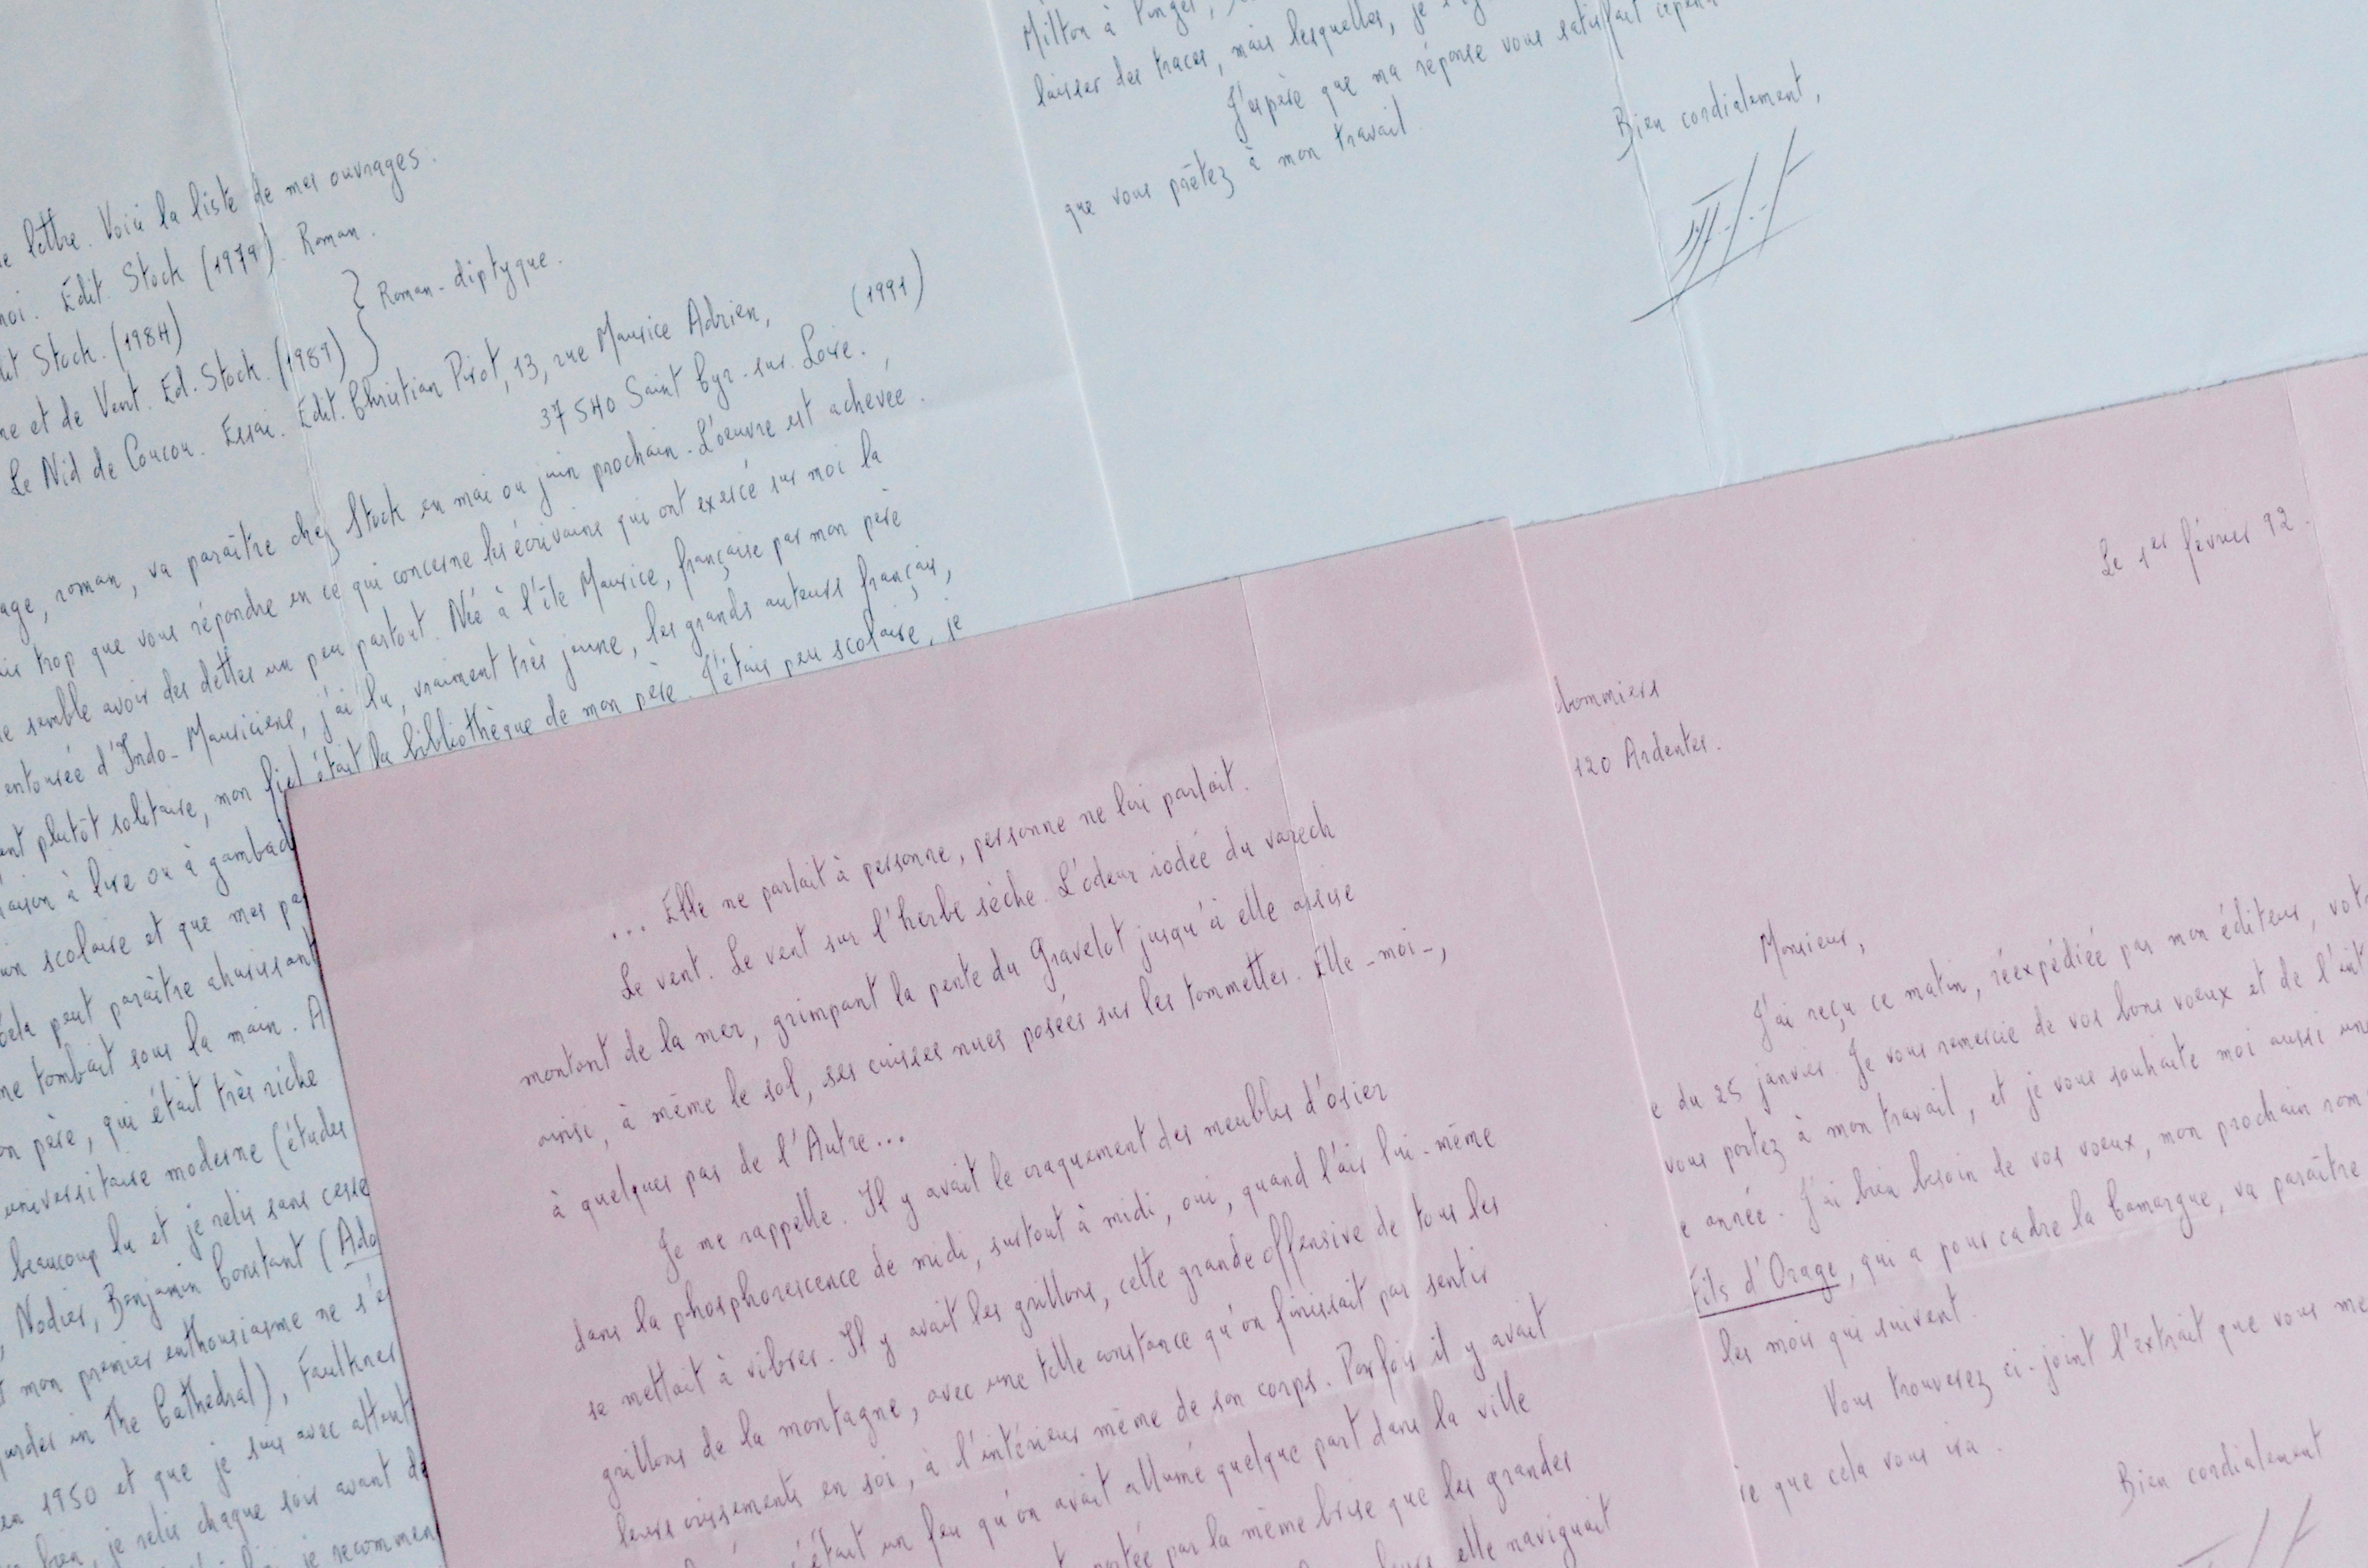 lettre. Voici la liste de mes ouvrages.
moi. Édit. Stock (1979). Roman.
Stock. (1984)
} Roman-diptyque.
et de Vent. Ed. Stock. (1989)
Le Nid de Coucou. Essai. Édit. Christian Pirot, 13, rue Maurice Adrien, (1991)
37540 Saint Cyr-sur-Loire.
roman, va paraître chez Stock en mai ou juin prochain. L'oeuvre est achevée.
trop que vous répondre en ce qui concerne les écrivains qui ont exercé sur moi la
semble avoir des dettes un peu partout. Née à l'île Maurice, française par mon père
entourée d'Indo-Mauriciens, j'ai lu, vraiment très jeune, les grands auteurs français,
plutôt solitaire, mon fief était la bibliothèque de mon père. J'étais peu scolaire, je
à lire ou à gambad
scolaire et que mes pa
cela peut paraître ahurissant
me tombait sous la main. A
père, qui était très riche
universitaire moderne (études
beaucoup lu et je relis sans cesse
, Nodier, Benjamin Constant (Ado
mon premier enthousiasme ne s'e
in The Cathedral), Faulkner
en 1950 et que je suis avec attent
bien, je relis chaque soir avant de
je recommen
Milton à Pinget,
laisser des traces, mais lesquelles, je
J'espère que ma réponse vous satisfait
que vous prêtez à mon travail
Bien cordialement,
... Elle ne parlait à personne, personne ne lui parlait.
Le vent. Le vent sur l'herbe sèche. L'odeur iodée du varech
montant de la mer, grimpant la pente du Gravelot jusqu'à elle assise
ainsi, à même le sol, ses cuisses nues posées sur les tommettes. Elle-moi-,
à quelques pas de l'Autre...
Je me rappelle. Il y avait le craquement des meubles d'osier
dans la phosphorescence de midi, surtout à midi, oui, quand l'air lui-même
se mettait à vibrer. Il y avait les grillons, cette grande offensive de tous les
grillons de la montagne, avec une telle constance qu'on finissait par sentir
leurs crissements en soi, à l'intérieur même de son corps. Parfois il y avait
était un feu qu'on avait allumé quelque part dans la ville
portée par la même brise que les grandes
elle naviguait
Le 1er février 92.
120 Ardentes.
Monsieur,
J'ai reçu ce matin, réexpédiée par mon éditeur, votr
e du 25 janvier. Je vous remercie de vos bons voeux et de l'int
vous portez à mon travail, et je vous souhaite moi aussi un
e année. J'ai bien besoin de vos voeux, mon prochain rom
Fils d'Orage, qui a pour cadre la Camargue, va paraître
les mois qui suivent.
Vous trouverez ci-joint l'extrait que vous me
que cela vous ira.
Bien cordialement